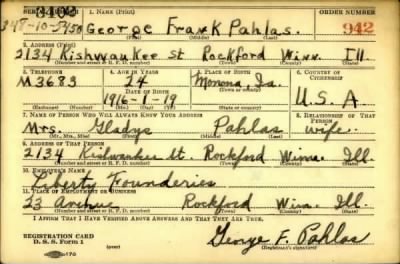 SERIAL NUMBER 1. NAME (Print) ORDER NUMBER
3402 George Frank Pahlas. 942
(First) (Middle) (Last)
2. ADDRESS (Print)
2134 Kishwaukee St Rockford Winn. Ill.
(Number and street or R. F. D. number) (Town) (County) (State)
3. TELEPHONE 4. AGE IN YEARS 5. PLACE OF BIRTH 6. COUNTRY OF CITIZENSHIP
M3683 24 Monona Ia. U.S.A.
DATE OF BIRTH
1916-9-19
(Exchange) (Number) (Mo.) (Day) (Yr.) (Town or county) (State or country)
7. NAME OF PERSON WHO WILL ALWAYS KNOW YOUR ADDRESS 8. RELATIONSHIP OF THAT PERSON
Mrs. Gladys Pahlas wife.
(Mr., Mrs., Miss) (First) (Middle) (Last)
9. ADDRESS OF THAT PERSON
2134 Kishwaukee St. Rockford Winn. Ill.
(Number and street or R. F. D. number) (Town) (County) (State)
10. EMPLOYER'S NAME
Liberty Founderies
11. PLACE OF EMPLOYMENT OR BUSINESS
23 Avenue Rockford Win. Ill.
(Number and street or R. F. D. number) (Town) (County) (State)
I AFFIRM THAT I HAVE VERIFIED ABOVE ANSWERS AND THAT THEY ARE TRUE.
REGISTRATION CARD
D. S. S. Form 1 (over) George F. Pahlas
(Registrant's signature)